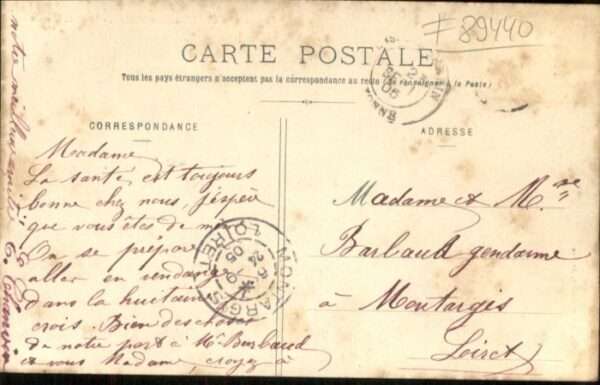 #89440
CARTE POSTALE
Tous les pays étrangers n'acceptent pas la correspondance au recto (Se renseigner à la Poste)
CORRESPONDANCE
ADRESSE
Madame
La santé est toujours
bonne chez nous, j'espère
que vous êtes de m
On se prépare
aller en vendange
dans la huitaine
crois. Bien des choses
de notre part à Mr Barbaud
et vous Madame, croyez à
notre meilleure amitié
Madame et M.
Barbaud gendarme
à Montargis
Loiret
MONTARGIS
LOIRET
24
05